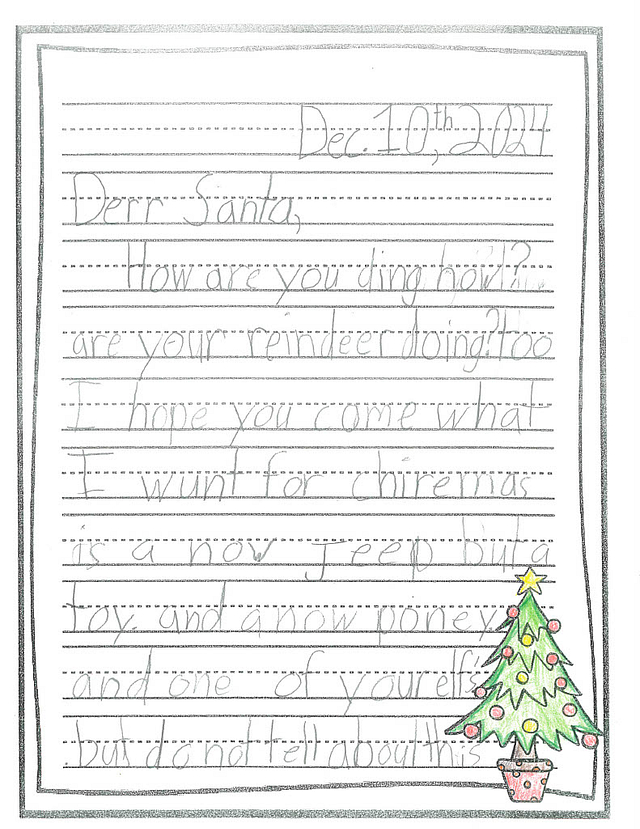 Dec. 10th, 2024
Derr Santa,
How are you ding how?
are your reindeer doing? too
I hope you come what
I wunt for chiremas
is a now Jeep but a
toy. and a now poney
and one of your elf's
but do not tell about this